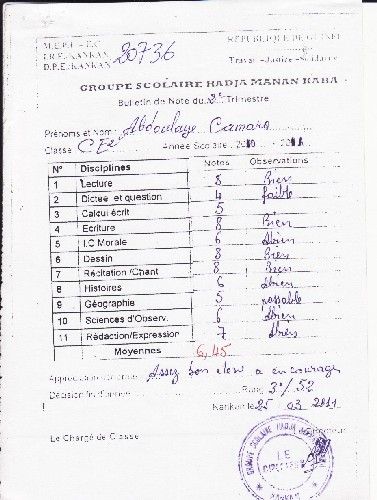 M.E.P.U - E.C
I.R.E. KANKAN
D.P.E. KANKAN
20736
RÉPUBLIQUE DE GUINEE
Travail -Justice -Solidarité
GROUPE SCOLAIRE HADJA MANAN KABA
Bulletin de Note du 2e Trimestre
Prénoms et Nom: Abdoulaye Camara
Classe CE2 Année Scolaire 2010 2011
N° Disciplines Notes Observations
1 Lecture 8 Bien
2 Dictée et question 4 faible
3 Calcul écrit 5
4 Ecriture 8 Bien
5 I.C Morale 6 Abien
6 Dessin 8 Bien
7 Récitation /Chant 8 Bien
8 Histoires 6 Abien
9 Géographie 5 passable
10 Sciences d'Observ. 6 Abien
11 Rédaction/Expression 7 Abien
Moyennes 6,45
Appréciation Assez bon eleve a encourager
Décision fin d'année Rang 3e/52
Kankan le 25 03 2011
Le Chargé de Classe
GROUPE SCOLAIRE HADJA
LE DIRECTEUR
KANKAN